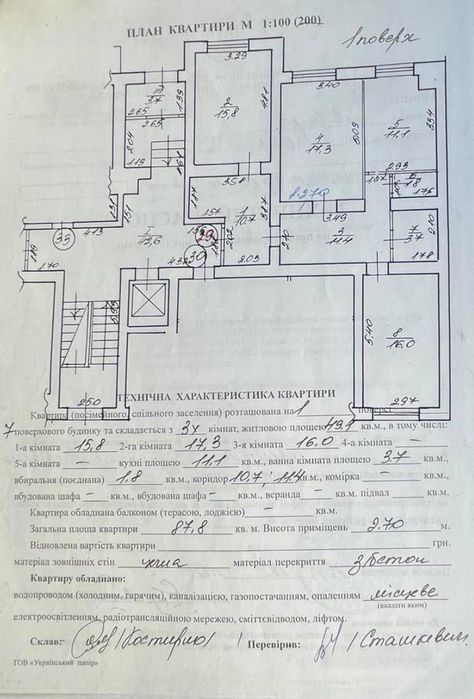 ПЛАН КВАРТИРИ М 1:100 (200)
1 поверх
3.29
2
15,8
4.81
III
3.7
1.39
2.65
2.65
2.04
1.19
1.61
3.40
4
17.3
5.09
5
11,1
3.34
2.93
1.57
6
1.8
1.75
3.51
1.57
1
10.7
3.07
h.270
3.49
3
11.4
2.10
7
3.7
2.10
1.78
1.51
33
4.13
I
42,6
29
30
2.02
2.03
1.19
1.70
4.32
8
16,0
5.40
2.97
250
ТЕХНІЧНА ХАРАКТЕРИСТИКА КВАРТИРИ
Квартира (посімейного, спільного заселення) розташована на 1 поверсі
7 поверхового будинку та складається з 3х кімнат, житловою площею 49,1 кв.м., в тому числі:
1-а кімната 15,8 2-га кімната 17,3 3-я кімната 16.0 4-а кімната –
5-а кімната – кухні площею 11,1 кв.м., ванна кімната площею 3.7 кв.м.,
вбиральня (поєднана) 1.8 кв.м., коридор 10.7; 11.4 кв.м., комірка кв.м.,
вбудована шафа – кв.м., вбудована шафа – кв.м., веранда – кв.м. підвал кв.м.
Квартира обладнана балконом (терасою, лоджією) – кв.м.
Загальна площа квартири 87,8 кв.м. Висота приміщень 2.70 м.
Відновлена вартість квартири грн.
матеріал зовнішніх стін цегла матеріал перекриття з бетон
Квартиру обладнано:
водопроводом (холодним, гарячим), каналізацією, газопостачанням, опаленням місцеве
(вказати яким)
електроосвітленням, радіотрансляційною мережею, сміттєвідводом, ліфтом.
Склав: Перевірив:
ТОВ «Український папір»